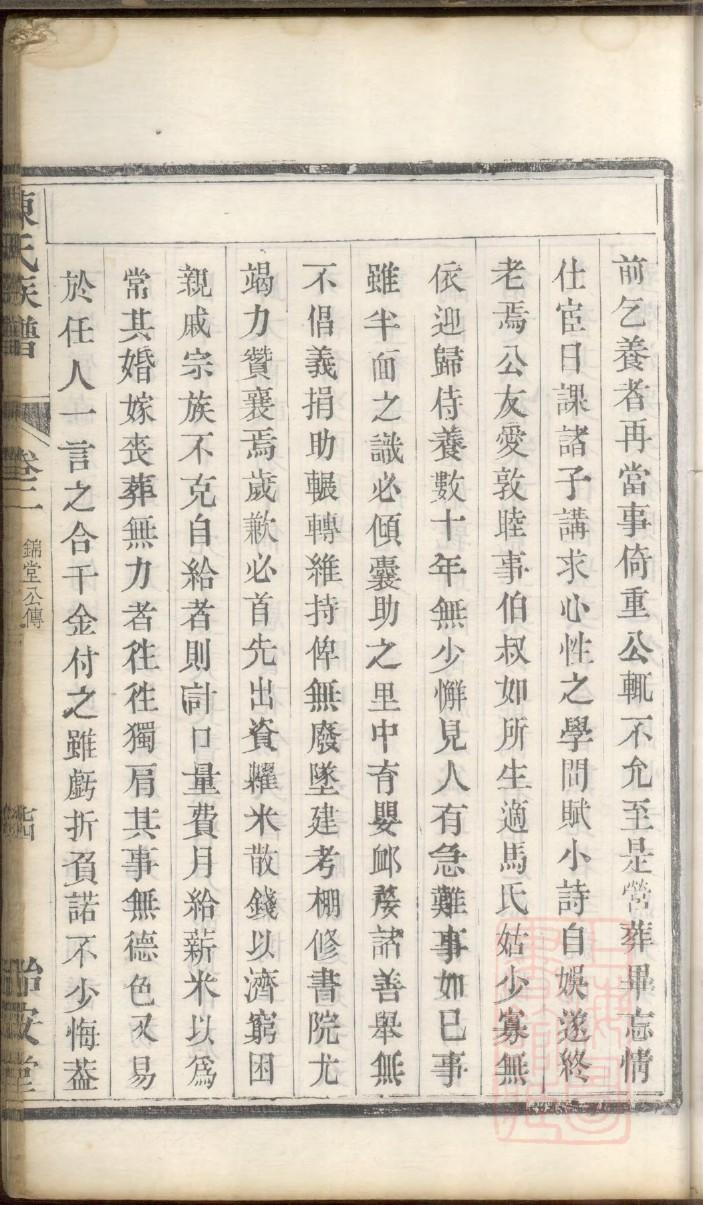 前乞養者再當事倚重公輒不允至是營葬畢忘情
仕宦日課諸子講求心性之學間賦小詩自娛遂終
老焉公友愛敦睦事伯叔如所生適馬氏姑少寡無
依迎歸侍養數十年無少懈見人有急難事如已事
雖半面之識必傾囊助之里中育嬰卹嫠諸善舉無
不倡義捐助輾轉維持俾無廢墜建考棚修書院尤
竭力贊襄焉歲歉必首先出資糴米散錢以濟窮困
親戚宗族不克自給者則計口量費月給薪米以爲
常其婚嫁喪葬無力者徃徃獨肩其事無德色又易
於任人一言之合千金付之雖虧折負諾不少悔葢
陳氏族譜
卷二
錦堂公傳